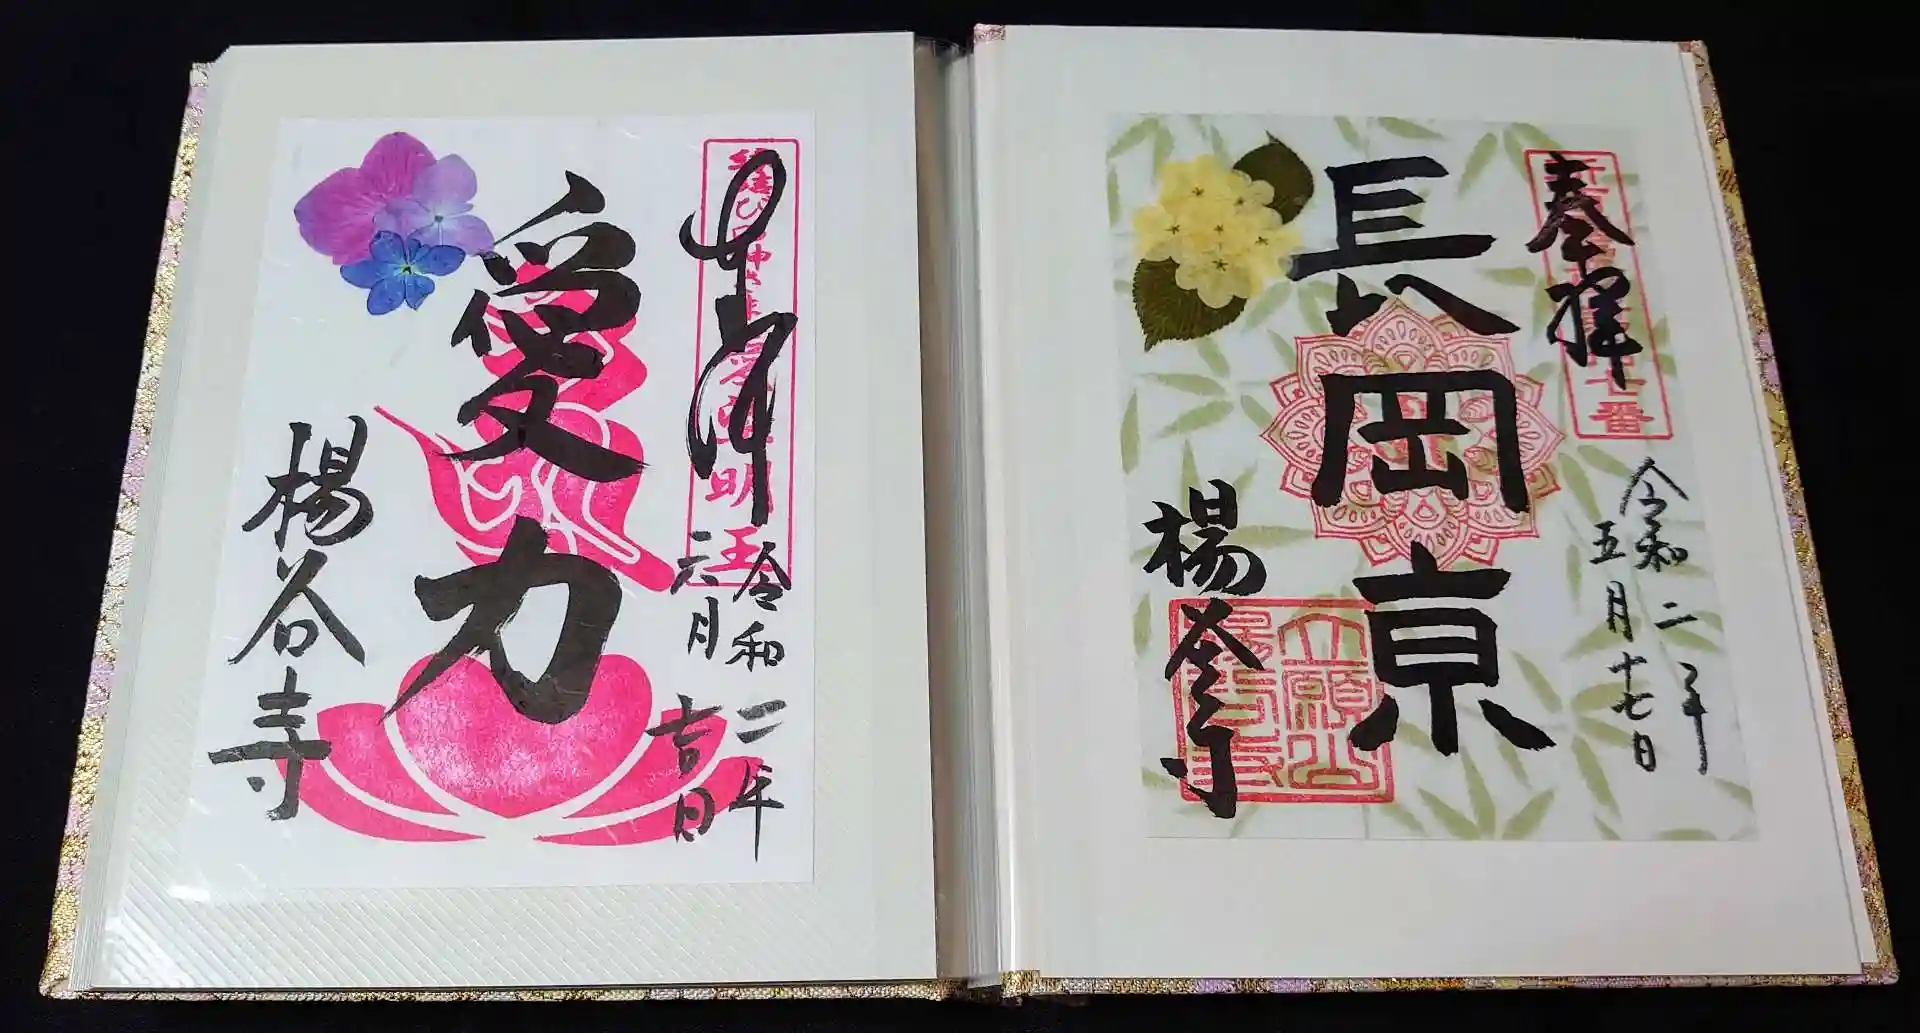 奉拝
明王
令和二年
六月吉日
愛力
楊谷寺
奉拝
七番
令和二年
五月十七日
長岡京
楊谷寺
立願山
楊谷寺